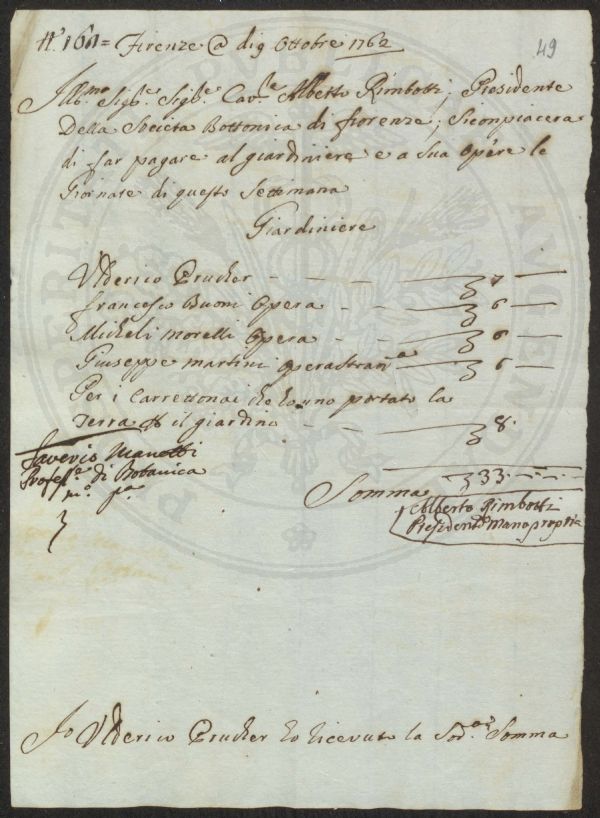 N.º 161 = Firenze @ di 9 Ottobre 1762
49
Ill.mo Sig.e Sig.e Cav.le Alberto Rimbotti; Presidente
Della Società Bottonica di fiorenze; Siconpiacera
di far pagare al giardiniere e a Sua Opére le
Giornate di questo Settimana
Giardiniere
Ulderico Prucker - - - - 7 -
francesco Buoni Opera - - - 6 -
Micheli Morelli Opera - - - 6 -
Giuseppe Martini Opera stran.a 6 -
Per i Carrettonai che hano portato la
Terra il giardino - - - 8
Saverio Manetti
Profes.e di Botanica
m.o p.a
Somma 33 - -
Alberto Rimbotti
Presidente Mano propria
Jo Ulderico Prucker ho ricevuto la Sod.a Somma
PERITI PUBLICA AUGENDO